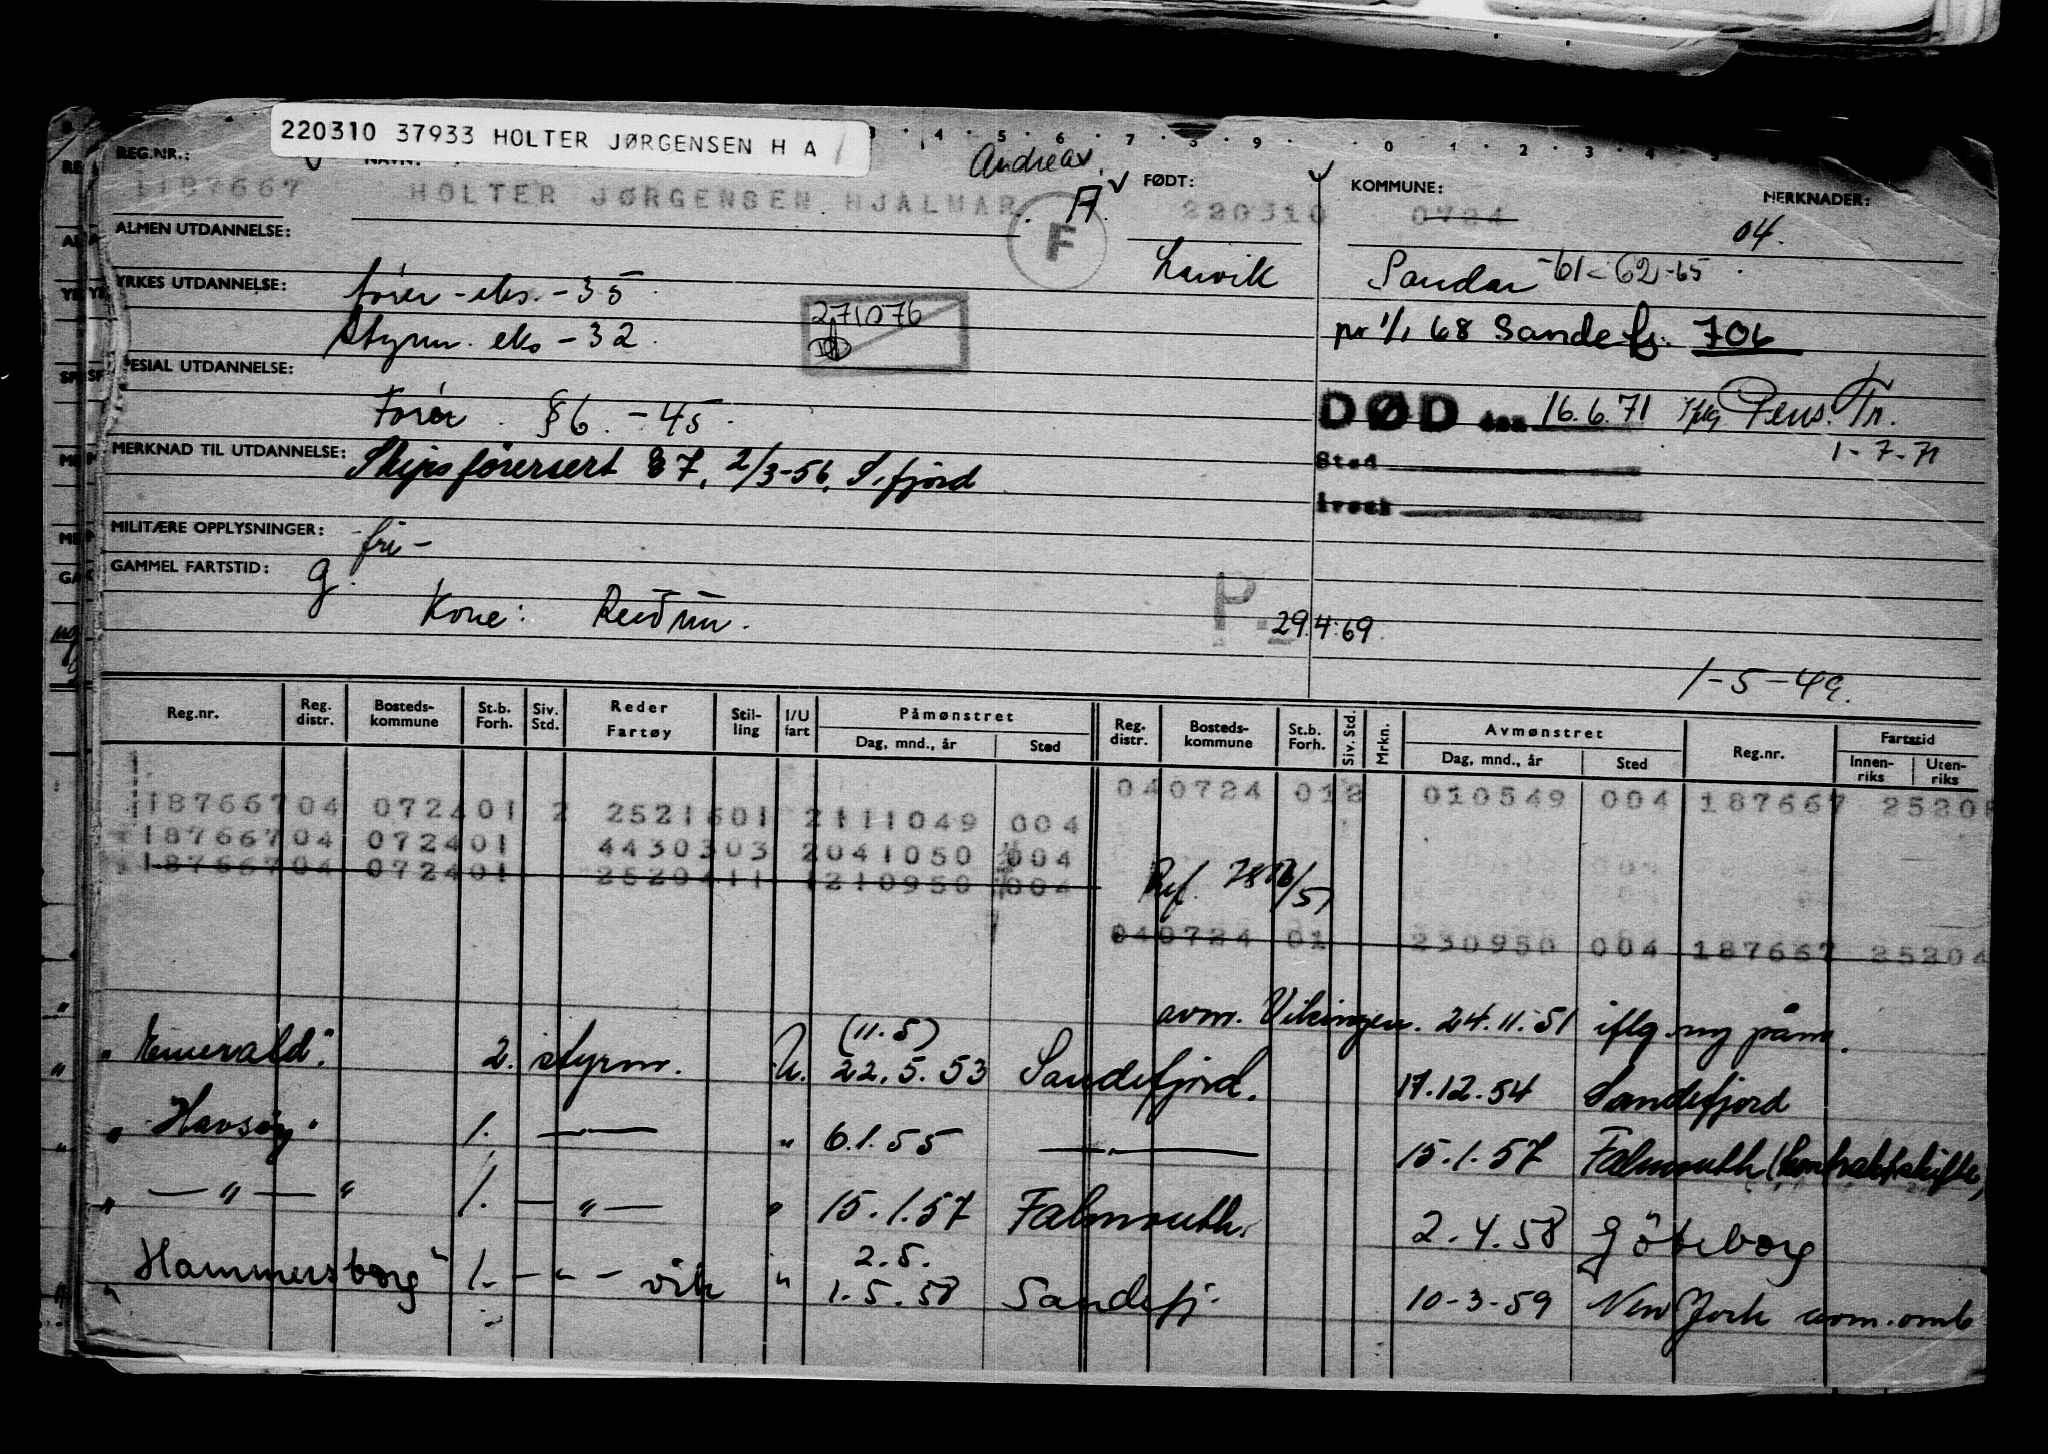 220310 37933 HOLTER JØRGENSEN H A
REG.NR.: NAVN: Andreas FØDT: KOMMUNE: MERKNADER:
1187667 HOLTER JØRGENSEN HJALMAR. A. 220310 0724 04.
F
ALMEN UTDANNELSE: Larvik Sandar -61-62-65
YRKES UTDANNELSE: fører-eks.-35
Styrm. eks -32 271076 pr 1/1 68 Sandefj. 706
SPESIAL UTDANNELSE:
Fører §6. -45. DØD den 16.6.71 iflg Pens. Tr.
1-7-71
MERKNAD TIL UTDANNELSE: Skipsførersert §7, 2/3-56, S.fjord
Sted
Årsak
MILITÆRE OPPLYSNINGER: fri-
GAMMEL FARTSTID: g.
Kone: P. 29.4.69.
1-5-49.
Reg.nr. Reg. distr. Bosteds-kommune St.b. Forh. Siv. Std. Reder Fartøy Stil-ling I/U fart Påmønstret Dag, mnd., år Sted Reg. distr. Bosteds-kommune St.b. Forh. Siv. Std. Mrkn. Avmønstret Dag, mnd., år Sted Reg.nr. Fartstid Innen-riks Uten-riks
040724 012 010549 004 187667 25205
118766704 072401 2 2521601 2111049 004
118766704 072401 4430303 2041050 004
118766704 072401 2520411 1210950 004
Ref.
040724 01 230950 004 187667 25204
avm. Vikingen. 24.11.51 iflg. ny påm.
(11.5)
"Emerald". 2. styrm. U. 22.5.53 Sandefjord. 17.12.54 Sandefjord
" Havsøy" 1. — — " 6.1.55 — " — 15.1.57 Falmouth (kontraktskifte)
" — " — " 1. — " — " 15.1.57 Falmouth. 2.4.58 Göteborg
2.5.
" Hammersborg" 1. - " - vik " 1.5.58 Sandefj. 10-3-59 New York avm. omb